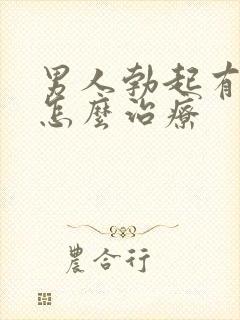 男人勃起有
怎麼治療
農合行